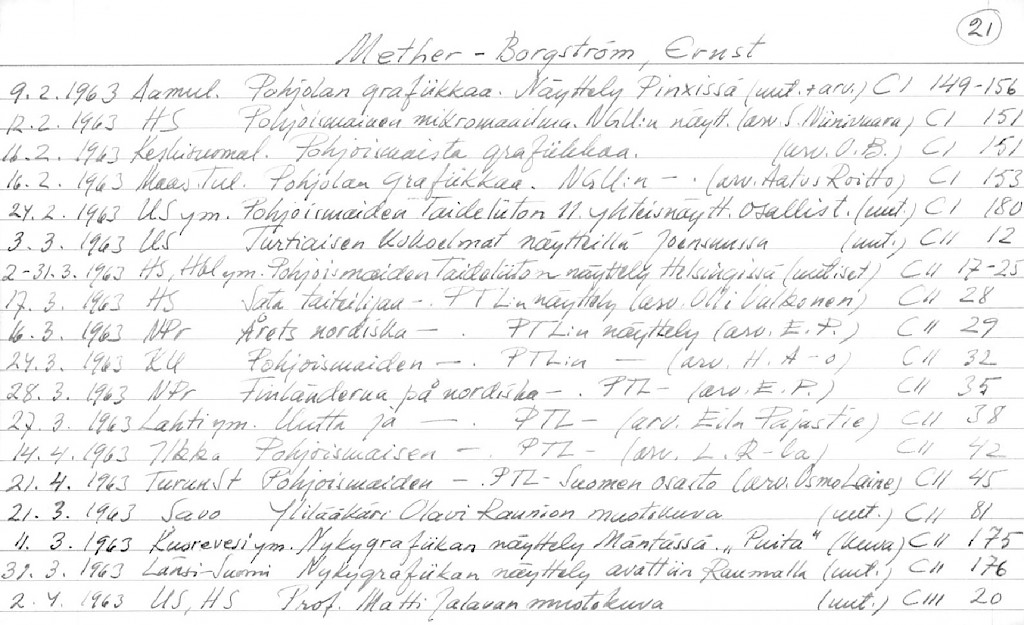 21
Mether-Borgström, Ernst
9.2.1963 Aamul. Pohjolan grafiikkaa. Näyttely Pinxissä (uut.+arv.) CI 149-156
12.2. 1963 HS Pohjoismainen mikromaailma. NGU:n näytt. (arv. S. Niinivaara) CI 151
16.2. 1963 Keskisuomal. Pohjoismaista grafiikkaa. (arv. O.B.) CI 151
16.2. 1963 Maas.Tul. Pohjolan grafiikkaa. NGU:n - . (arv. Aatus Roitto) CI 153
24.2. 1963 US ym. Pohjoismaiden Taideliiton 11. yhteisnäytt. osallist. (uut.) CI 180
3.3. 1963 US Turtiaisen kokoelmat näytteillä Joensuussa (uut.) CII 12
2-31.3. 1963 HS, Hbl ym. Pohjoismaiden Taideliiton näyttely Helsingissä (uutiset) CII 17-25
17.3. 1963 HS Sata taiteilijaa -. PTL:n näyttely (arv. Olli Valkonen) CII 28
16.3. 1963 NPr Årets nordiska - . PTL:n näyttely (arv. E.P.) CII 29
24.3. 1963 KU Pohjoismaiden - . PTL:n - (arv. H. A-o) CII 32
28.3. 1963 NPr Finländarna på nordiska - . PTL - (arv. E.P.) CII 35
27.3. 1963 Lahti ym. Uutta ja - . PTL - (arv. Eila Pajastie) CII 38
14.4. 1963 Ilkka Pohjoismaisen - . PTL - (arv. L. R-la) CII 42
21.4. 1963 TurunSt Pohjoismaiden - . PTL - Suomen osasto (arv. Osmo Laine) CII 45
21.3. 1963 Savo Ylilääkäri Olavi Raunion muotokuva (uut.) CII 81
11.3. 1963 Kuorevesi ym. Nykygrafiikan näyttely Mäntässä. „Puita" (kuva) CII 175
31.3. 1963 Länsi-Suomi Nykygrafiikan näyttely avattiin Raumalla (uut.) CII 176
2.4. 1963 US, HS Prof. Matti Jalavan muotokuva (uut.) CIII 20